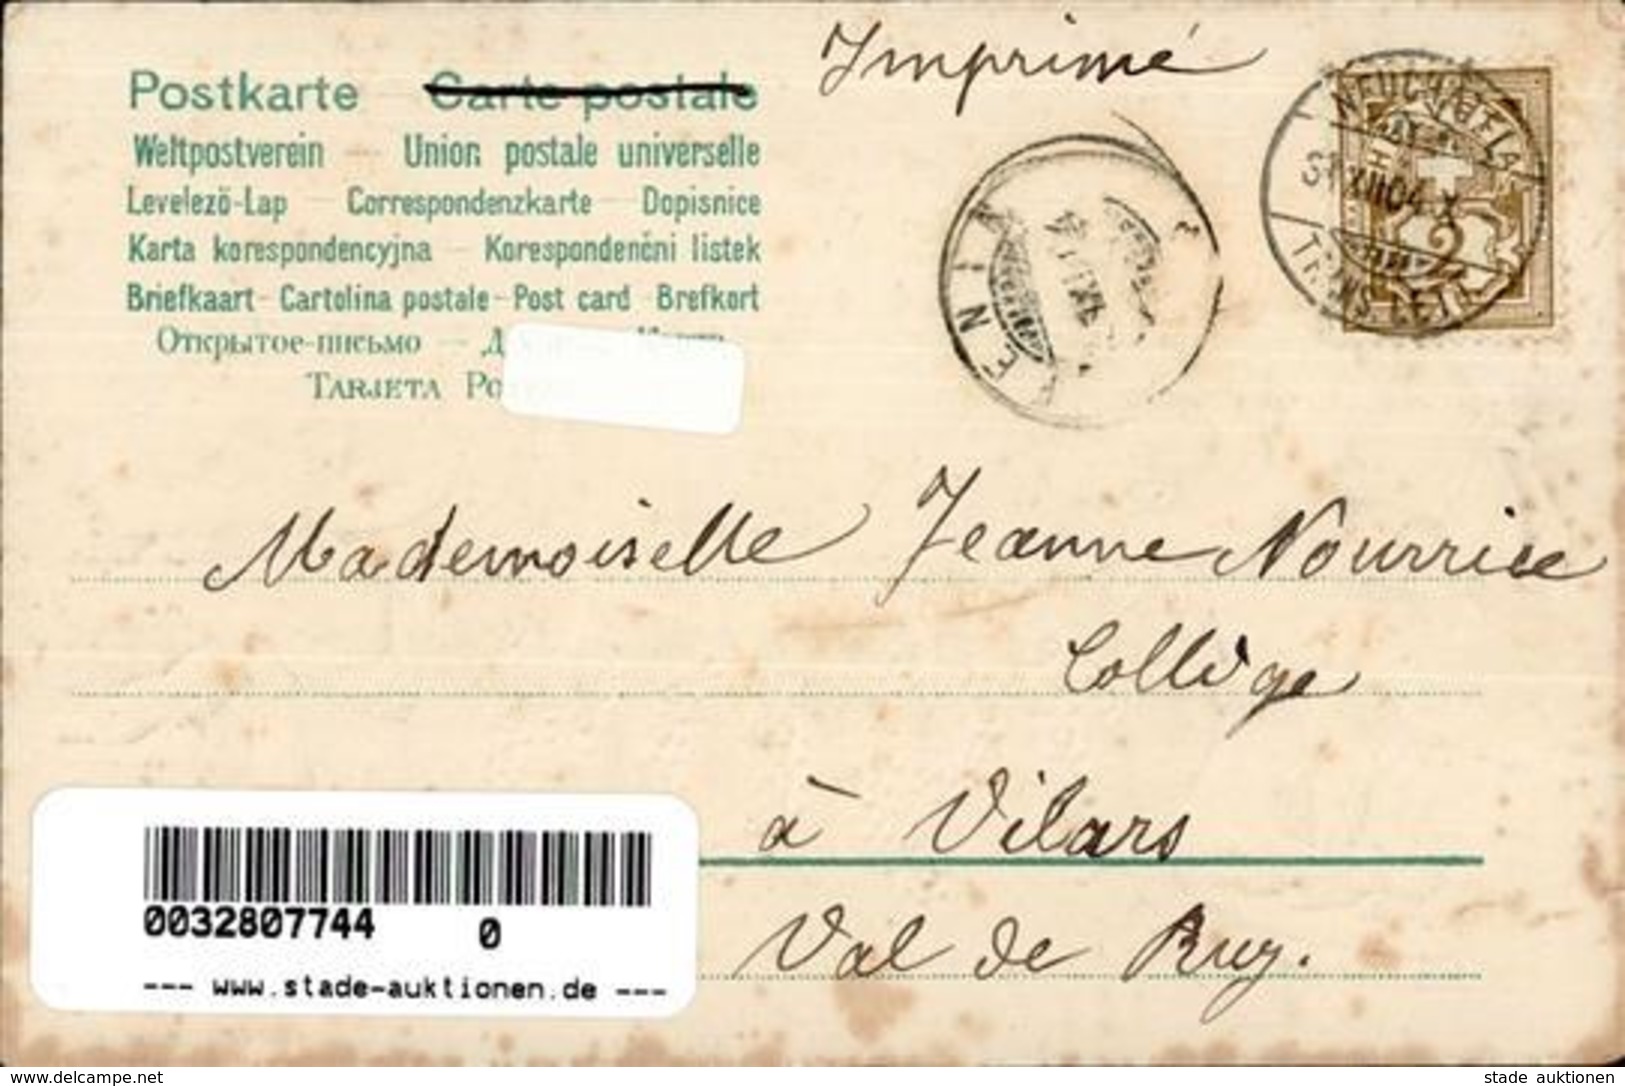 Imprimé
Postkarte Carte postale
Weltpostverein — Union postale universelle
Levelező-Lap — Correspondenzkarte — Dopisnice
Karta korespondencyjna — Korespondenční listek
Briefkaart - Cartolina postale - Post card Brefkort
Открытое-письмо —
TARJETA
NEUCHATEL
31 XII 04 X
2
Mademoiselle Jeanne Nourrice
Collège
à Vilars
Val de Ruz.
0032807744 0
--- www.stade-auktionen.de ---
www.delcampe.net
stade auktionen